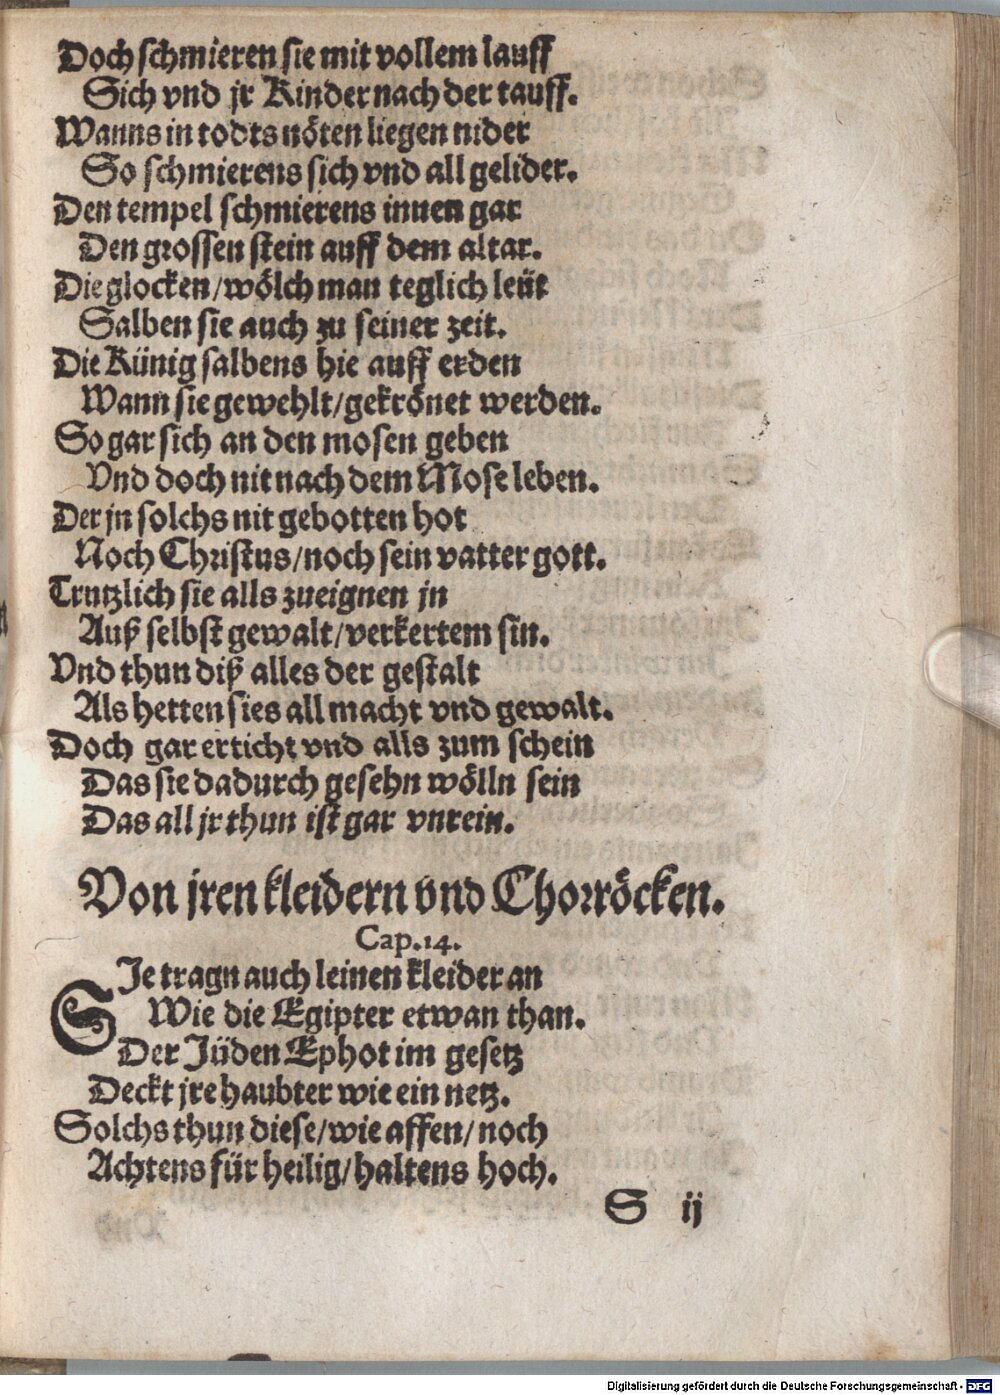 Doch schmieren sie mit vollem lauff
Sich vnd jr Kinder nach der tauff.
Wanns in todts nöten liegen nider
So schmierens sich vnd all gelider.
Den tempel schmierens innen gar
Den grossen stein auff dem altar.
Die glocken/wölch man teglich leüt
Salben sie auch zu seiner zeit.
Die Künig salbens hie auff erden
Wann sie gewehlt/gekrönet werden.
So gar sich an den mosen geben
Vnd doch nit nach dem Mose leben.
Der jn solchs nit gebotten hot
Noch Christus/noch sein vatter gott.
Trutzlich sie alls zueignen jn
Auß selbst gewalt/verkertem sin.
Vnd thun diß alles der gestalt
Als hetten sies all macht vnd gewalt.
Doch gar erticht vnd alls zum schein
Das sie dadurch gesehn wölln sein
Das all jr thun ist gar vnrein.
Von jren kleidern vnd Chorröcken.
Cap.14.
SJe tragn auch leinen kleider an
Wie die Egipter etwan than.
Der Jüden Ephot im gesetz
Deckt jre haubter wie ein netz.
Solchs thun diese/wie affen/noch
Achtens für heilig/haltens hoch.
S ij
Digitalisierung gefördert durch die Deutsche Forschungsgemeinschaft - DFG